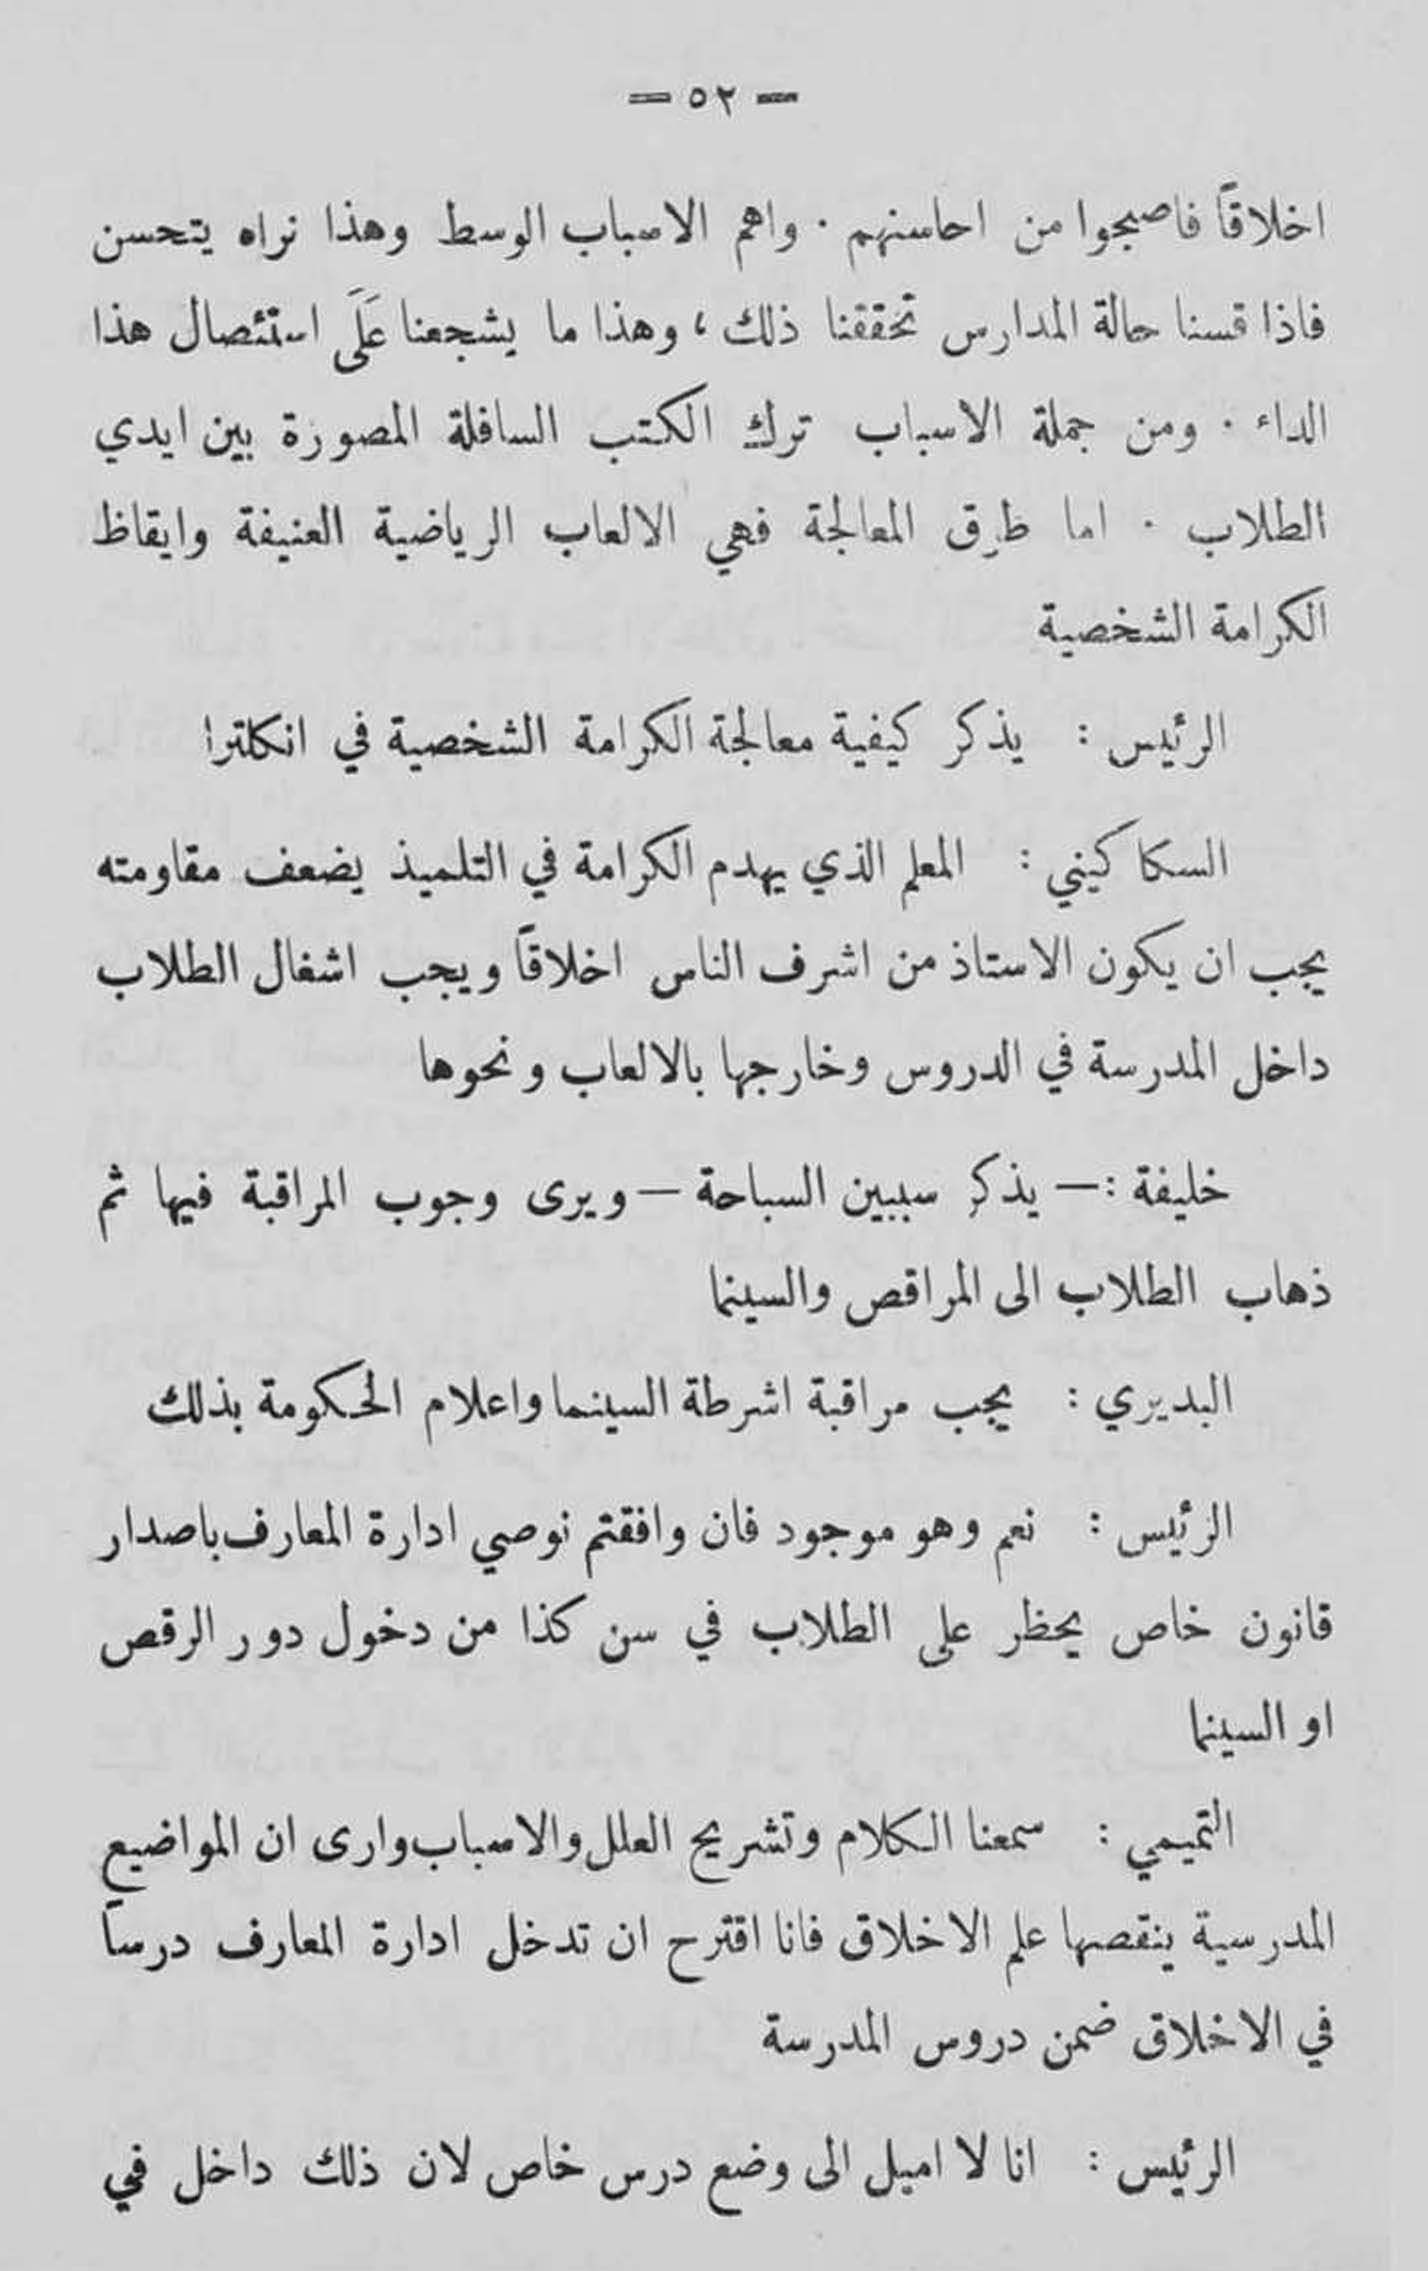 — ٥٢ —
اخلاقاً فاصبحوا من احاسنهم . واهم الاسباب الوسط وهذا نراه يتحسن
فاذا قسنا حالة المدارس تحققنا ذلك ، وهذا ما يشجعنا عَلَى استئصال هذا
الداء . ومن جملة الاسباب ترك الكتب السافلة المصورة بين ايدي
الطلاب . اما طرق المعالجة فهي الالعاب الرياضية العنيفة وايقاظ
الكرامة الشخصية
الرئيس : يذكر كيفية معالجة الكرامة الشخصية في انكلترا
السكاكيني : المعلم الذي يهدم الكرامة في التلميذ يضعف مقاومته
يجب ان يكون الاستاذ من اشرف الناس اخلاقاً ويجب اشغال الطلاب
داخل المدرسة في الدروس وخارجها بالالعاب ونحوها
خليفة :— يذكر سببين السباحة — ويرى وجوب المراقبة فيها ثم
ذهاب الطلاب الى المراقص والسينما
البديري : يجب مراقبة اشرطة السينما واعلام الحكومة بذلك
الرئيس : نعم وهو موجود فان وافقتم نوصي ادارة المعارف باصدار
قانون خاص يحظر على الطلاب في سن كذا من دخول دور الرقص
او السينما
التميمي : سمعنا الكلام وتشريح العلل والاسباب وارى ان المواضيع
المدرسية ينقصها علم الاخلاق فانا اقترح ان تدخل ادارة المعارف درساً
في الاخلاق ضمن دروس المدرسة
الرئيس : انا لا اميل الى وضع درس خاص لان ذلك داخل في